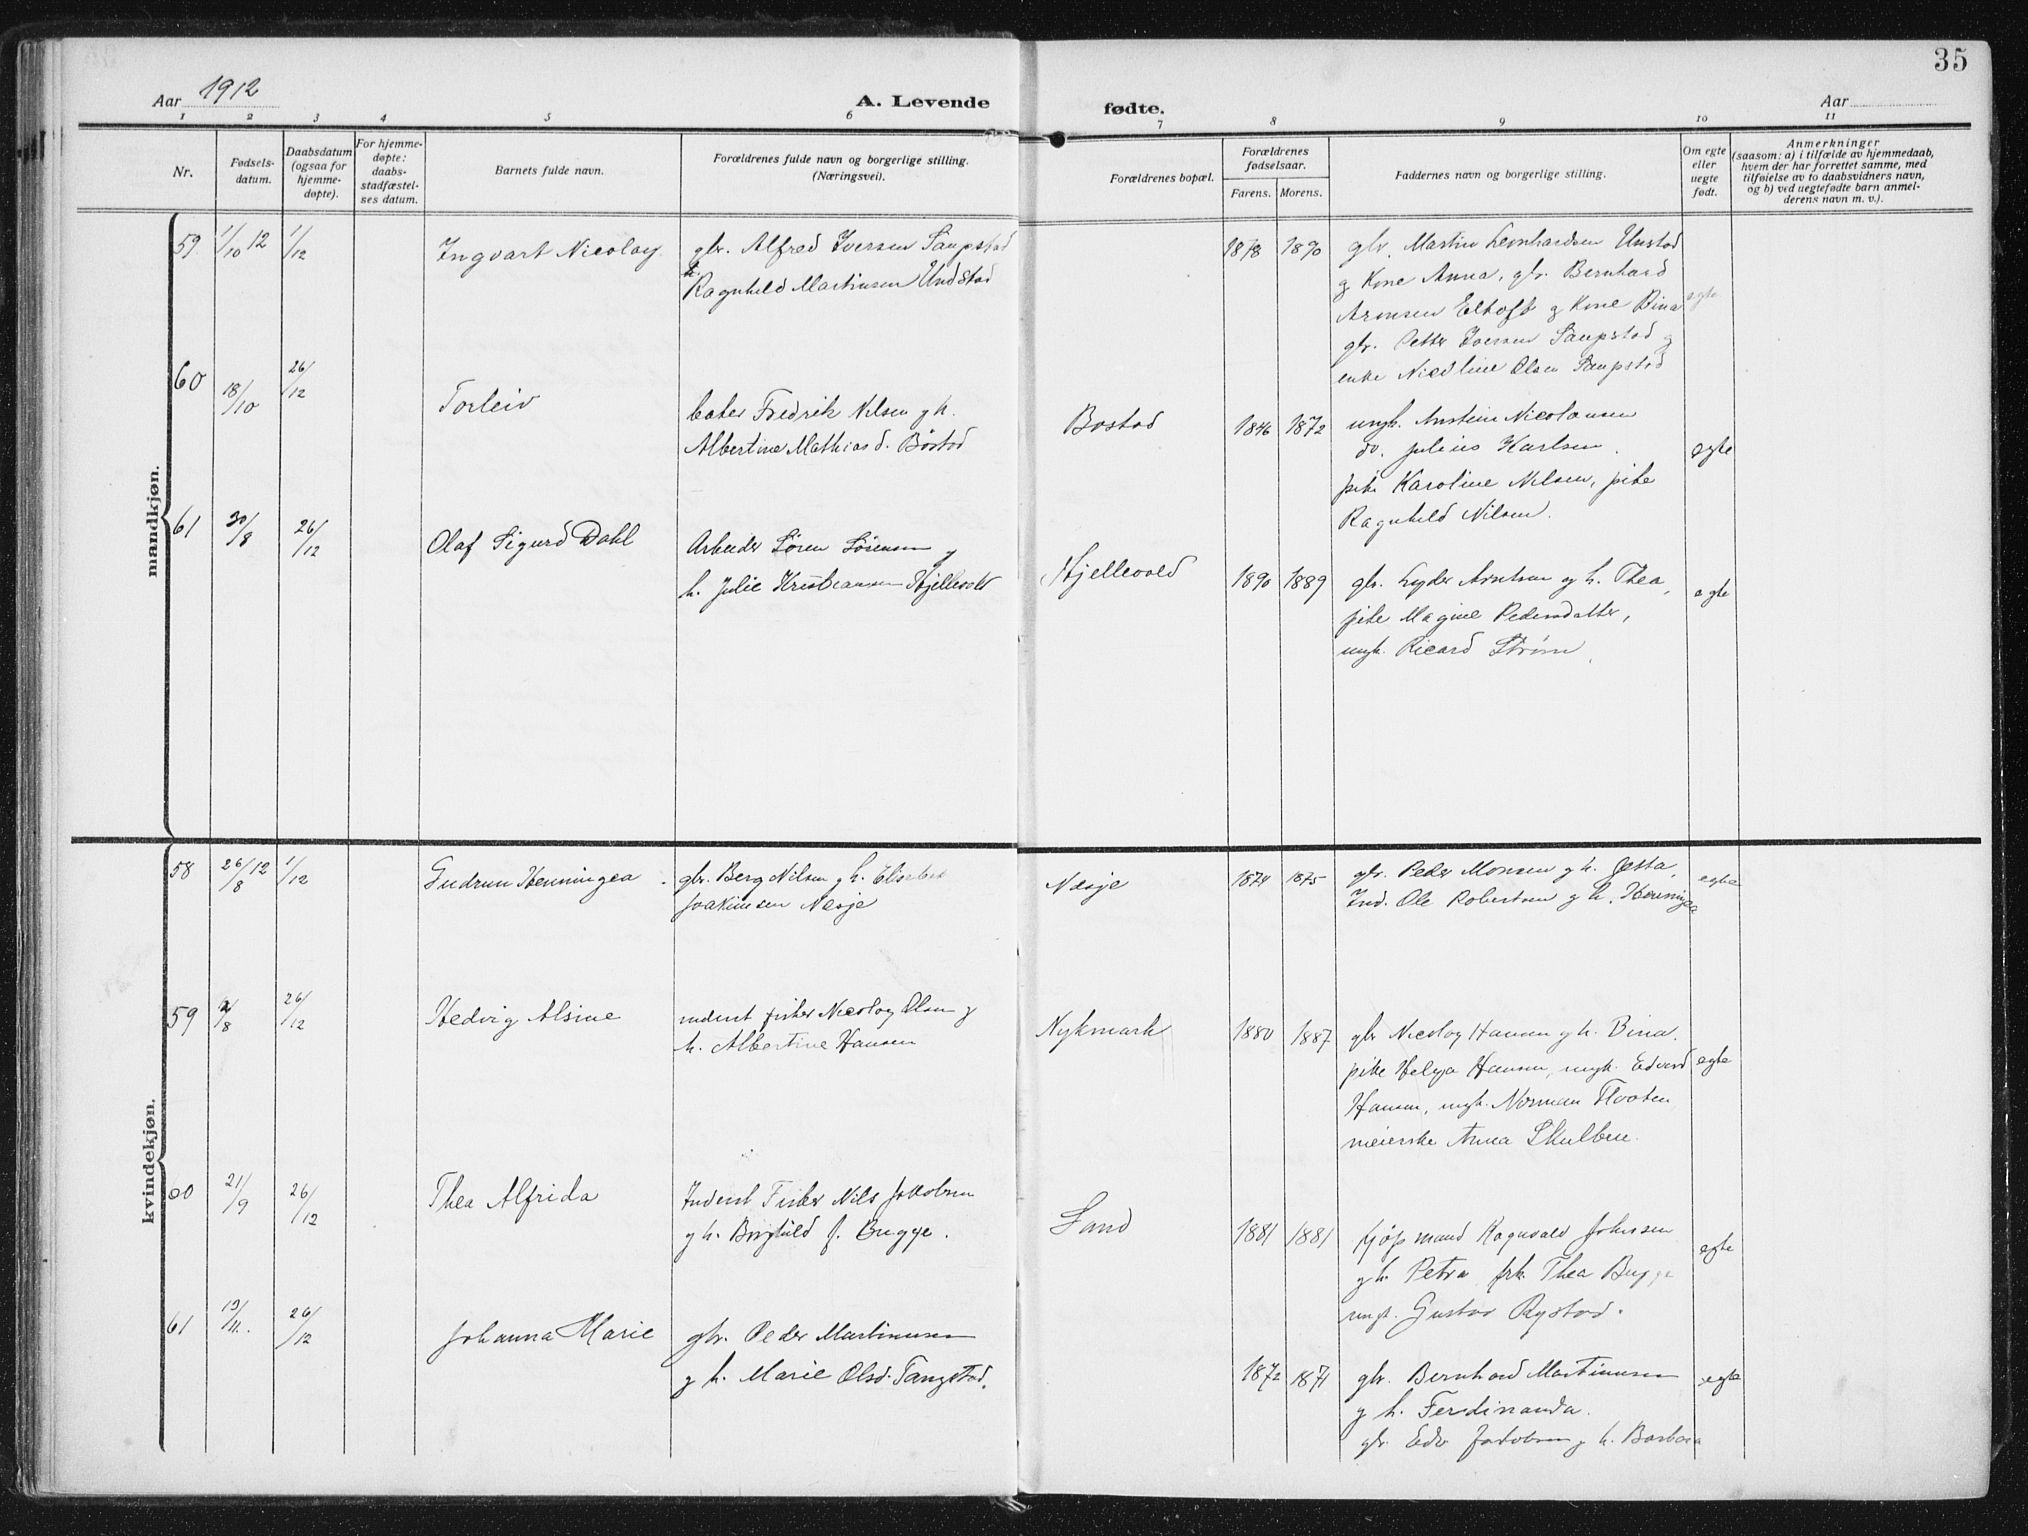 35
Aar 1912
A. Levende
fødte.
Aar
1 2 3 4 5 6 7 8 9 10 11
Nr.
Fødsels-
datum.
Daabsdatum
(ogsaa for
hjemme-
døpte).
For hjemme-
døpte:
daabs-
stadfæstel-
ses datum.
Barnets fulde navn.
Forældrenes fulde navn og borgerlige stilling.
(Næringsvei).
Forældrenes bopæl.
Forældrenes
fødselsaar.
Farens. Morens.
Faddernes navn og borgerlige stilling.
Om egte
eller
uegte
født.
Anmerkninger
(saasom: a) i tilfælde av hjemmedaab,
hvem der har forrettet samme, med
tilføielse av to daabsvidners navn,
og b) ved uegtefødte barn anmel-
derens navn m. v.).
mandkjøn.
59 1/10 12 1/12 Ingvart Nicolay gbr. Alfred Iversen Saupstad
Ragnhild Martinsen Undstad
1878 1890 gbr. Martin Leonhardsen Unstad
g Kone Anna, gbr. Bernhard
Aronsen Eltoft g Kone Bina
egte
gbr. Petter Iversen Saupstad g
enke Nicoline Olsen Saupstad
60 18/10 26/12 Torleiv Fredrik Nilsen g h.
Albertine Mathiasd. Bostad
Bostad 1846 1872 ungk. Nicolaisen
do. Julius Karlsen
egte
pike Karoline Nilsen, pike
Ragnhild Nilsen.
61 30/8 26/12 Olaf Sigurd Dahl Arbeider Søren Sørensen g
h. Julie Kristiansen Hjellevold
Hjellevold 1890 1889 gbr. Lyder Arntsen g h. Thea,
egte
pike Magine Pedersdatter,
ungk. Ricard Strøm
kvindekjøn.
58 26/8 12 1/12 Gudrun Henningea gbr. Berg Nilsen g h. Elisabet
Joakimsen Nesje
Nesje 1874 1875 gbr. Peder Monsen g h. Jesta,
egte
Ind. Ole Robertsen g h. Henningea
59 2/8 26/12 Hedvig Alsine inderst fisker Nicolay Olsen g
h. Albertine Hansen
Nykmark 1880 1887 gbr Nicolay Hansen g h. Bina.
pike Helga Hansen, ungk. Edvard
egte
Hansen, ungk. Norman Flooten
meierske Anna Skulben.
60 21/9 26/12 Thea Alfrida Inderst Fisker Nils Jakobsen
g h. Borghild f. Bugge.
Sand 1881 1881 Kjøpmand Ragnvald Johnsen
egte
g h. Petra frk. Thea Bugge
ungk. Gustav Rystad.
61 19/11. 26/12 Johanna Marie gbr. Peder Martinusen
g h. Marie Olsd. Tangstad.
1872 1871 gbr. Bernhard Martinusen
egte
g h. Ferdinanda.
gbr. Edv Jakobsen g h. Barbara